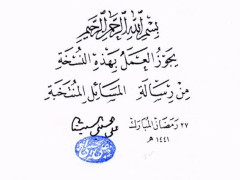 بسم الله الرحمن الرحيم
يجوز العمل بهذه النسخة
من رسالة المسائل المنتخبة
٢٧ رمضان المبارك
١٤٤١ هـ